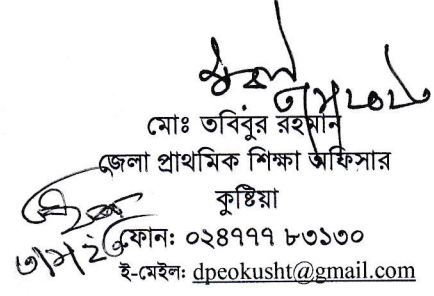 মোঃ তবিবুর রহমান
জেলা প্রাথমিক শিক্ষা অফিসার
কুষ্টিয়া
ফোন: ০২৪৭৭৭ ৮৩১৩০
ই-মেইল: dpeokusht@gmail.com